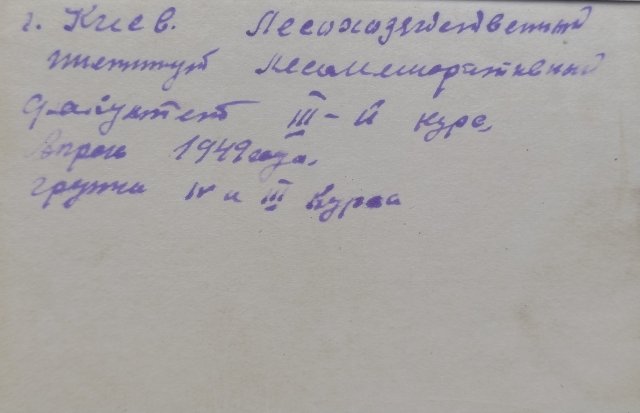 г. Киев. Лесохозяйственный
институт Лесомелиоративный
факультет III-й курс.
Апрель 1949 года.
группа IV и III курса